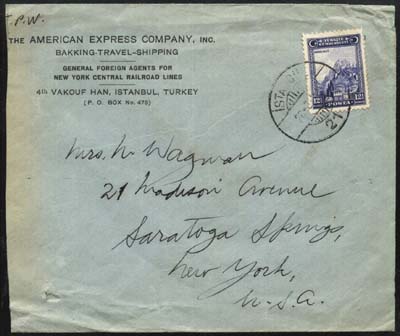 T.P.W.
THE AMERICAN EXPRESS COMPANY, INC.
BAKKING-TRAVEL-SHIPPING
GENERAL FOREIGN AGENTS FOR
NEW YORK CENTRAL RAILROAD LINES
4th VAKOUF HAN, ISTANBUL, TURKEY
(P. O. BOX No. 475)
12½ POSTA 12½
ISTA
21
Mrs. N. Wagman
21 Madison Avenue
Saratoga Springs,
New York,
U.S.A.